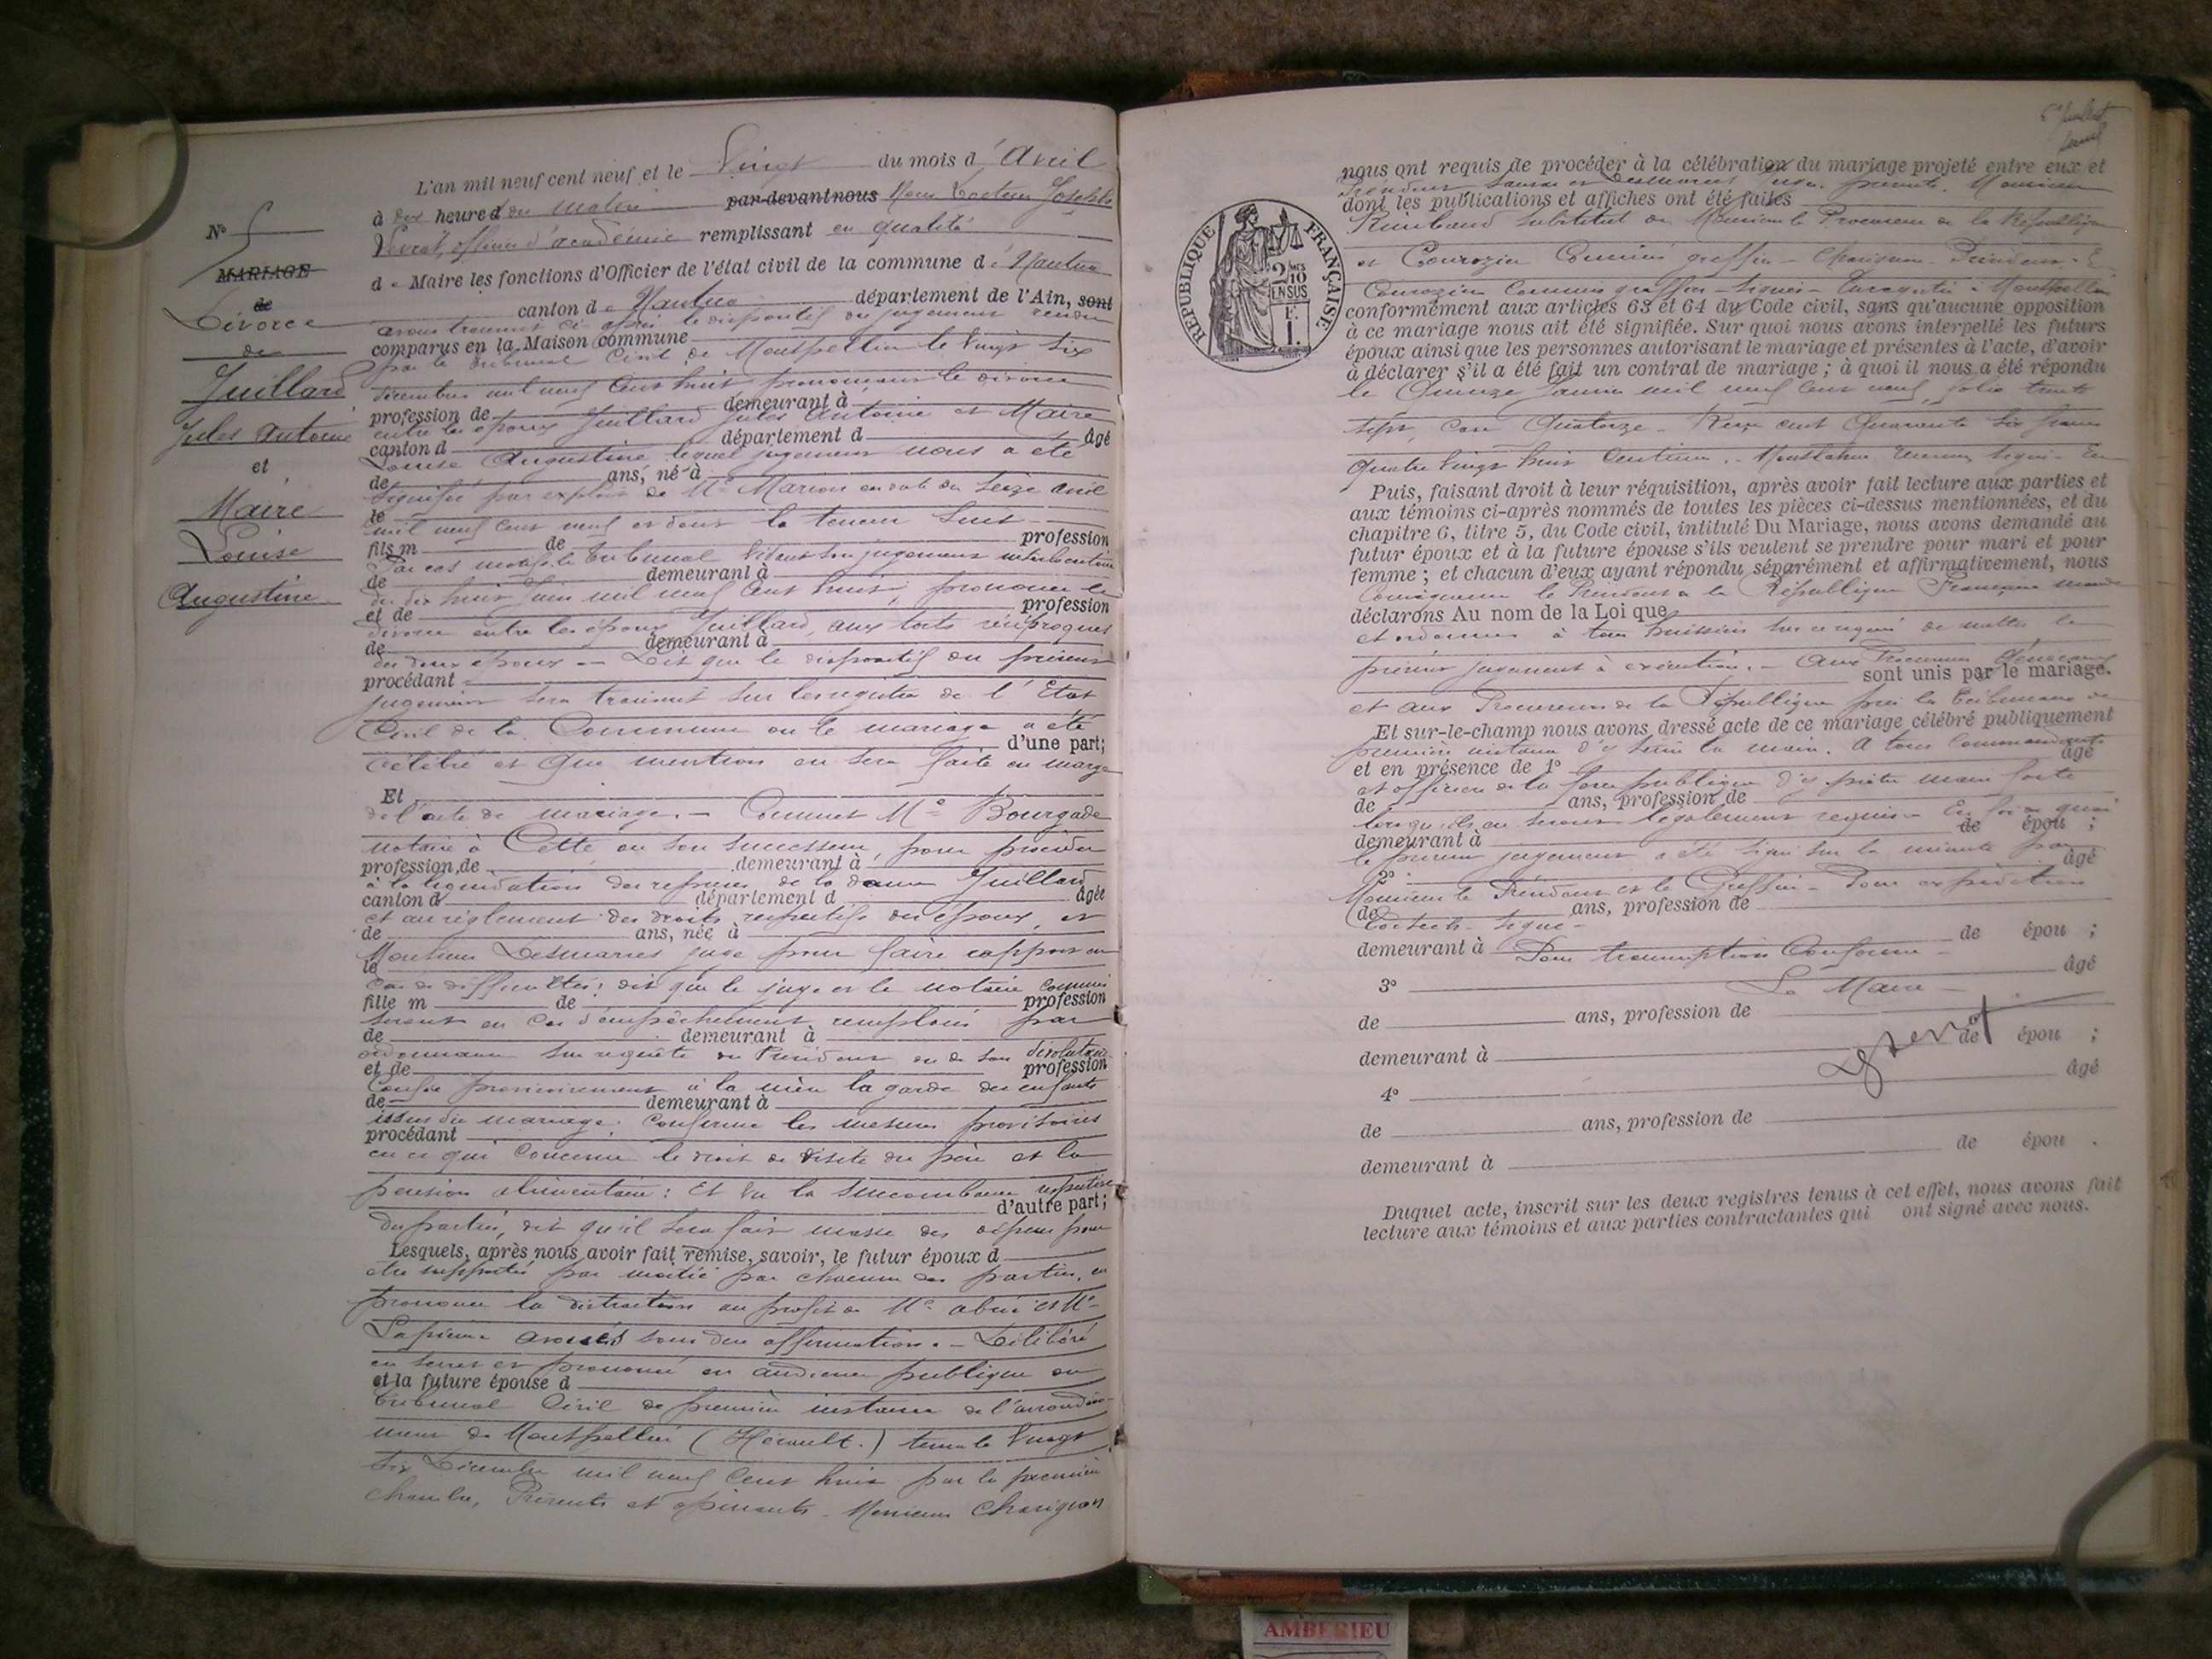 L'an mil neuf cent neuf et le Vingt du mois d'Avril
à dix heures du matin par-devant nous Nous Docteur Joseph
Nº 5
officier d'académie remplissant en qualité
MARIAGE
de Maire les fonctions d'Officier de l'état civil de la commune de Nantua
de
Divorce
canton de Nantua département de l'Ain, sont
avons transcrit ci-après le dispositif du jugement rendu
de
comparus en la Maison commune
par le tribunal Civil de Montpellier le Vingt six
Juillard
décembre mil neuf Cent huit prononçant le divorce
profession de demeurant à
Jules Antoine
entre les époux Juillard Jules Antoine et Maire
canton d département d âgé
et
Louise Augustine lequel jugement nous a été
de ans, né à
signifié par exploit de Me Marion en date du Seize avril
Maire
le
mil neuf Cent neuf et dont la teneur Suit
Louise
fils m de profession
Par ces motifs le tribunal Vidant son jugement interlocutoire
de demeurant à
Augustine
du dix huit Juin mil neuf Cent huit, prononce le
et de profession
divorce entre les époux Juillard, aux torts réciproques
de demeurant à
des deux époux - Dit que le dispositif du présent
procédant
jugement sera transcrit sur les registres de l'Etat
Civil de la Commune où le mariage a été
d'une part;
célébré et Que mention en sera faite en marge
Et
de l'acte de mariage. - Commet Me Bourgade
notaire à Cette ou son successeur, pour procéder
profession de demeurant à
à la liquidation des reprises de la dame Juillard
canton d département d âgée
et au règlement des droits respectifs des époux, et
de ans, née à
Monsieur Desmarres juge pour faire rapport en
le
Cas de difficultés; dit que le juge et le notaire Commis
fille m de profession
seront en Cas d'empêchement remplacés par
de demeurant à
ordonnance sur requête du Président ou de son dévolutaire
et de profession
Confie provisoirement à la mère la garde des enfants
de demeurant à
issus du mariage; Confirme les mesures provisoires
procédant
en ce qui Concerne le droit de Visite du père et la
pension alimentaire: Et Vu la Succombance respective
d'autre part;
des parties, dit qu'il sera fait masse des dépens pour
Lesquels, après nous avoir fait remise, savoir, le futur époux d
être supportés par moitié par chacune des parties, en
prononce la distraction au profit de Me et Me
avoués sous due affirmation. - Délibéré
en secret et prononcé en audience publique du
et la future épouse d
tribunal Civil de première instance de l'arrondisse-
ment de Montpellier (Hérault.) tenue le Vingt
six Décembre mil neuf Cent huit par la première
chambre, Présents et opinants - Messieurs Charignon
nous ont requis de procéder à la célébration du mariage projeté entre eux et
Président et Desmarres juges. présents. Monsieur
dont les publications et affiches ont été faites
Substitut de Monsieur le Procureur de la République
RÉPUBLIQUE FRANÇAISE
2/10 EN SUS
F. 1.
et Courozier Commis greffier - Charignon - Président - E
Courozier Commis greffier - signés - Enregistré à Montpellier
conformément aux articles 63 et 64 du Code civil, sans qu'aucune opposition
à ce mariage nous ait été signifiée. Sur quoi nous avons interpellé les futurs
époux ainsi que les personnes autorisant le mariage et présentes à l'acte, d'avoir
à déclarer s'il a été fait un contrat de mariage; à quoi il nous a été répondu
le Quinze Janvier mil neuf Cent neuf, folio trente
sept, Case Quatorze - Reçu cent Quarante Six francs
Quatre Vingt huit Centimes. - signé - En
Puis, faisant droit à leur réquisition, après avoir fait lecture aux parties et
aux témoins ci-après nommés de toutes les pièces ci-dessus mentionnées, et du
chapitre 6, titre 5, du Code civil, intitulé Du Mariage, nous avons demandé au
futur époux et à la future épouse s'ils veulent se prendre pour mari et pour
femme; et chacun d'eux ayant répondu séparément et affirmativement, nous
Conséquence le Président de la République Française mande
déclarons Au nom de la Loi que
et ordonne à tous huissiers sur ce requis de mettre le
présent jugement à exécution. - Aux Procureurs Généraux
sont unis par le mariage.
et aux Procureurs de la République près les tribunaux de
Et sur-le-champ nous avons dressé acte de ce mariage célébré publiquement
première instance d'y tenir la main. A tous Commandants
et en présence de 1º âgé
et officiers de la force publique d'y prêter main forte
de ans, profession de
lorsqu'ils en seront légalement requis - En foi de quoi
demeurant à de épou ;
le présent jugement a été signé sur la minute par
2º âgé
Monsieur le Président et le Greffier - Pour expédition
de ans, profession de
signé -
demeurant à de épou ;
Pour transcription Conforme -
3º âgé
Le Maire -
de ans, profession de
demeurant à de épou ;
4º âgé
de ans, profession de
demeurant à de épou .
Duquel acte, inscrit sur les deux registres tenus à cet effet, nous avons fait
lecture aux témoins et aux parties contractantes qui ont signé avec nous.
AMBERIEU